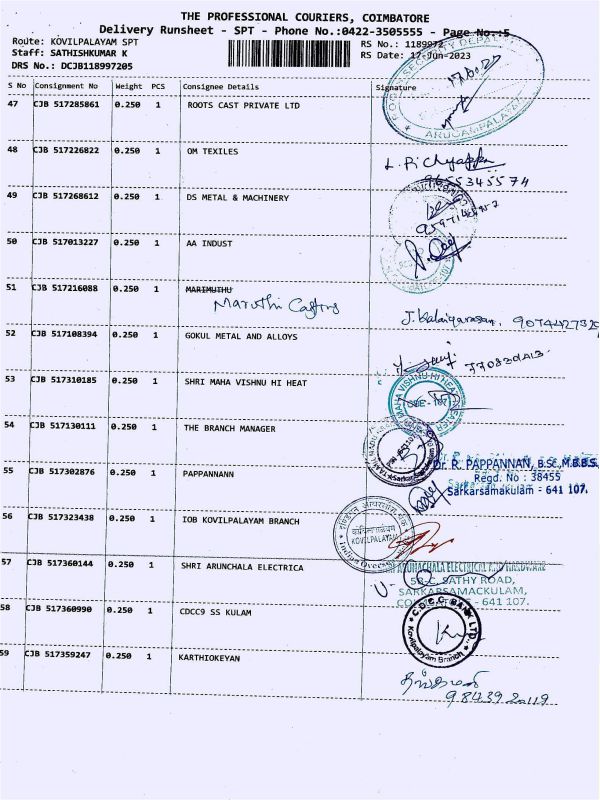 THE PROFESSIONAL COURIERS, COIMBATORE
Delivery Runsheet - SPT - Phone No.:0422-3505555 - Page No.:5
Route: KOVILPALAYAM SPT
RS No.: 1189972
Staff: SATHISHKUMAR K
RS Date: 17-Jun-2023
DRS No.: DCJB118997205
S No Consignment No Weight PCS Consignee Details Signature
47 CJB 517285861 0.250 1 ROOTS CAST PRIVATE LTD
ARUGAMPALAYAM
48 CJB 517226822 0.250 1 OM TEXILES
9655345574
49 CJB 517268612 0.250 1 DS METAL & MACHINERY
50 CJB 517013227 0.250 1 AA INDUST
51 CJB 517216088 0.250 1 MARIMUTHU
Maruthi Castings
J. Kalaiyarasan,
52 CJB 517108394 0.250 1 GOKUL METAL AND ALLOYS
53 CJB 517310185 0.250 1 SHRI MAHA VISHNU HI HEAT
MAHA VISHNU HI HEAT
54 CJB 517130111 0.250 1 THE BRANCH MANAGER
Dr. R. PAPPANNAN, B.SC,M.B.B.S.,
55 CJB 517302876 0.250 1 PAPPANNANN
Regd. No : 38455
Sarkarsamakulam - 641 107.
56 CJB 517323438 0.250 1 IOB KOVILPALAYAM BRANCH
KOVILPALAYAM
57 CJB 517360144 0.250 1 SHRI ARUNCHALA ELECTRICA
ARUNACHALA ELECTRICAL AND HARDWARE
58-C, SATHY ROAD,
SARKARSAMACKULAM,
641 107.
58 CJB 517360990 0.250 1 CDCC9 SS KULAM
C.D.C.C. BANK LTD.
Kovilpalayam Branch
59 CJB 517359247 0.250 1 KARTHIOKEYAN